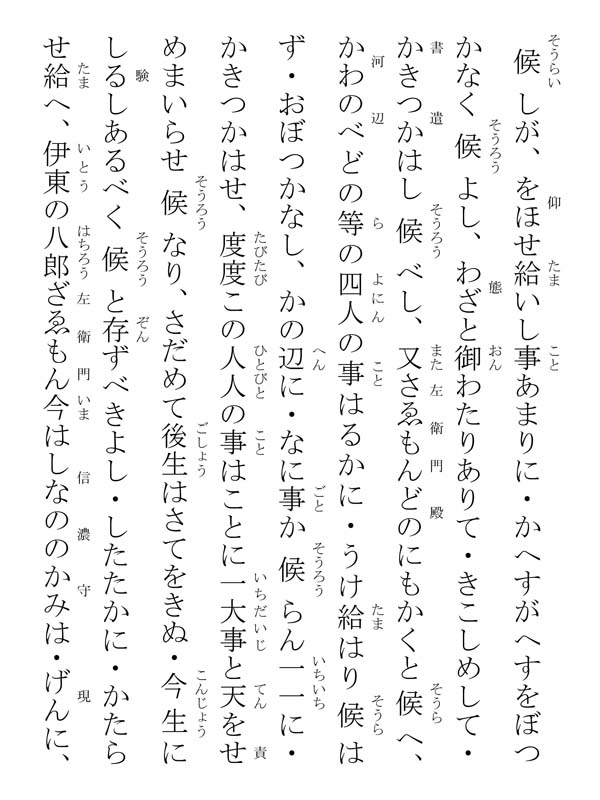 候しが、をほせ給いし事あまりに・かへすがへすをぼつ
かなく候よし、わざと御わたりありて・きこしめして・
かきつかはし候べし、又さゑもんどのにもかくと候へ、
かわのべどの等の四人の事はるかに・うけ給はり候は
ず・おぼつかなし、かの辺に・なに事か候らん一一に・
かきつかはせ、度度この人人の事はことに一大事と天をせ
めまいらせ候なり、さだめて後生はさてをきぬ・今生に
しるしあるべく候と存ずべきよし・したたかに・かたら
せ給へ、伊東の八郎ざゑもん今はしなののかみは・げんに、